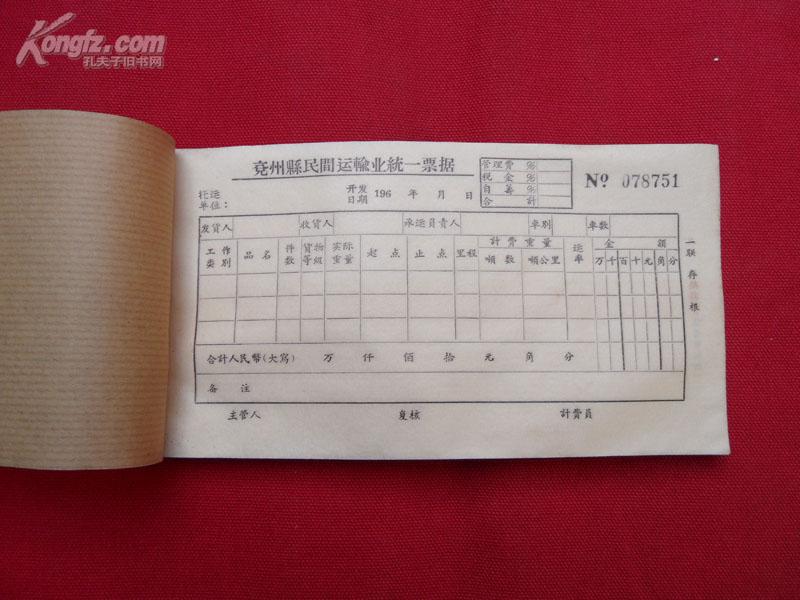 Kongfz.com
孔夫子旧书网
兗州縣民間运輸业統一票据
管理費 %
税金 %
自善 %
合計
№ 078751
托运
单位：
开发
日期 196 年 月 日
发貨人 收貨人 承运負責人 車別 車数
工作类別 品名 件数 貨物等級 实际重量 起点 止点 里程 計費重量 运率 金額
噸数 噸公里 万 千 百 十 元 角 分
合計人民幣(大寫) 万 仟 佰 拾 元 角 分
备注
主管人 复核 計費員
一联 存根